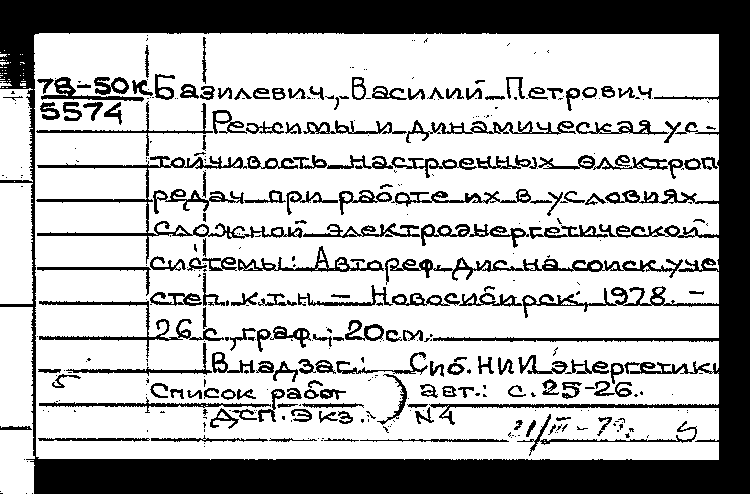 78-50к Базилевич, Василий Петрович
5574
Режимы и динамическая ус-
тойчивость настроенных электроп
редач при работе их в условиях
сложной электроэнергетической
системы: Автореф. дис. на соиск. уче
степ. к.т.н. – Новосибирск, 1978. –
26 с., граф.; 20см.
В надзаг.: Сиб. НИИ энергетики
Список работ авт.: с. 25-26.
ДСП. Экз. N4
21/III-79г.